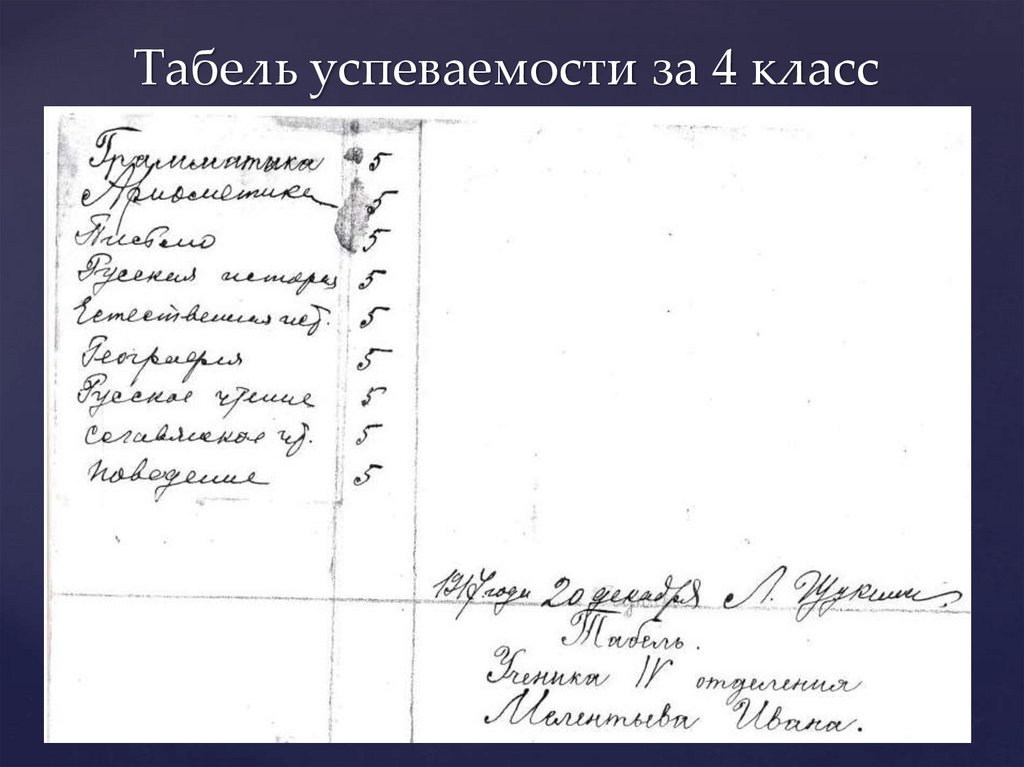 Табель успеваемости за 4 класс
Грамматика 5
Арифметика 5
Письмо 5
Русская история 5
Естественная ист. 5
География 5
Русское чтение 5
Славянское чт. 5
поведение 5
1917 года 20 декабря Л. Щукин
Табель.
Ученика IV отделения
Мелентьева Ивана.